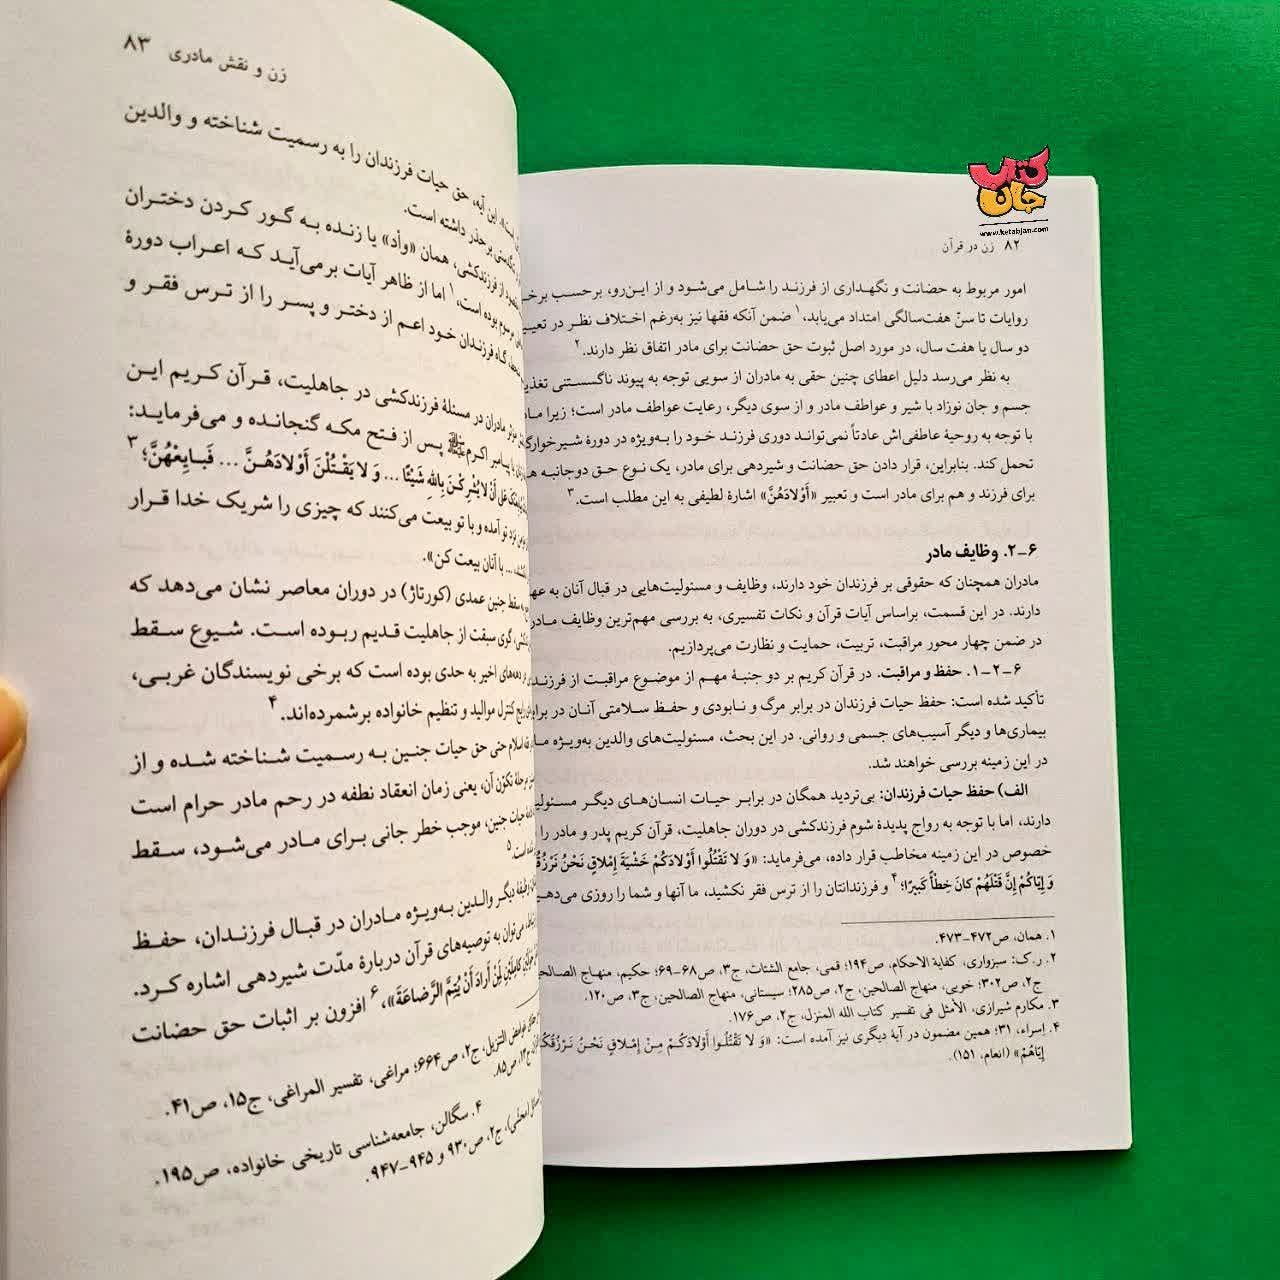 کتاب
جان
www.ketabjan.com
۸۲ زن در قرآن
امور مربوط به حضانت و نگهداری از فرزند را شامل می‌شود و از این‌رو، برحسب
روایات تا سنّ هفت‌سالگی امتداد می‌یابد،۱ ضمن آنکه فقها نیز به‌رغم اختلاف نظر در
دو سال یا هفت سال، در مورد اصل ثبوت حق حضانت برای مادر اتفاق نظر دارند.۲
به نظر می‌رسد دلیل اعطای چنین حقی به مادران از سویی توجه به پیوند ناگسستنی
جسم و جان نوزاد با شیر و عواطف مادر و از سوی دیگر، رعایت عواطف مادر است؛ زیرا
با توجه به روحیهٔ عاطفی‌اش عادتاً نمی‌تواند دوری فرزند خود را به‌ویژه در دورهٔ
تحمل کند. بنابراین، قرار دادن حق حضانت و شیردهی برای مادر، یک نوع حق دوجانبه
برای فرزند و هم برای مادر است و تعبیر «أَوْلادَهُنَّ» اشارهٔ لطیفی به این مطلب است.۳
۶-۲. وظایف مادر
مادران همچنان که حقوقی بر فرزندان خود دارند، وظایف و مسئولیت‌هایی در قبال آنان به
دارند. در این قسمت، براساس آیات قرآن و نکات تفسیری، به بررسی مهم‌ترین وظایف
در ضمن چهار محور مراقبت، تربیت، حمایت و نظارت می‌پردازیم.
۶-۲-۱. حفظ و مراقبت. در قرآن کریم بر دو جنبهٔ مهم از موضوع مراقبت از
تأکید شده است: حفظ حیات فرزندان در برابر مرگ و نابودی و حفظ سلامتی آنان در
بیماری‌ها و دیگر آسیب‌های جسمی و روانی. در این بحث، مسئولیت‌های والدین به‌ویژه
در این زمینه بررسی خواهند شد.
الف) حفظ حیات فرزندان: بی‌تردید همگان در برابر حیات انسان‌های دیگر
دارند، اما با توجه به رواج پدیدهٔ شوم فرزندکشی در دوران جاهلیت، قرآن کریم پدر و مادر را
خصوص در این زمینه مخاطب قرار داده، می‌فرماید: «وَ لا تَقْتُلُوا أَوْلادَكُمْ خَشْيَةَ إِمْلاقٍ نَحْنُ
وَ إِيَّاكُمْ إِنَّ قَتْلَهُمْ كانَ خِطْأً كَبِيرًا؛۴ و فرزندانتان را از ترس فقر نکشید، ما آنها و شما را روزی
۱. همان، ص۴۷۲-۴۷۳.
۲. ر.ک: سبزواری، کفایة الاحکام، ص۱۹۴؛ قمی، جامع الشتات، ج۳، ص۶۸-۶۹؛ حکیم، منهاج
ج۲، ص۳۰۲؛ خویی، منهاج الصالحین، ج۲، ص۲۸۵؛ سیستانی، منهاج الصالحین، ج۳، ص۱۲۰.
۳. مکارم شیرازی، الأمثل فی تفسیر کتاب الله المنزل، ج۲، ص۱۷۶.
۴. اسراء، ۳۱؛ همین مضمون در آیهٔ دیگری نیز آمده است: «وَ لا تَقْتُلُوا أَوْلادَكُمْ مِنْ إِمْلاقٍ نَحْنُ
إِيَّاهُمْ» (انعام، ۱۵۱).
زن و نقش مادری ۸۳
این آیه، حق حیات فرزندان را به رسمیت شناخته و والدین
برحذر داشته است.
از فرزندکشی، همان «وأد» یا زنده به گور کردن دختران
مرسوم بوده است،۱ اما از ظاهر آیات برمی‌آید که اعراب دورهٔ
گاه فرزندان خود اعم از دختر و پسر را از ترس فقر و
مادران در مسئلهٔ فرزندکشی در جاهلیت، قرآن کریم این
پیامبر اکرمﷺ پس از فتح مکه گنجانده و می‌فرماید:
عَلى أَنْ لا يُشْرِكْنَ بِاللهِ شَيْئًا ... وَ لا يَقْتُلْنَ أَوْلادَهُنَّ ... فَبايِعْهُنَّ؛۳
نزد تو آمده و با تو بیعت می‌کنند که چیزی را شریک خدا قرار
... با آنان بیعت کن».
سقط جنین عمدی (کورتاژ) در دوران معاصر نشان می‌دهد که
گوی سبقت از جاهلیت قدیم ربوده است. شیوع سقط
دهه‌های اخیر به حدی بوده است که برخی نویسندگان غربی،
کنترل موالید و تنظیم خانواده برشمرده‌اند.۴
اسلام حتی حق حیات جنین به رسمیت شناخته شده و از
مرحلهٔ تکوّن آن، یعنی زمان انعقاد نطفه در رحم مادر حرام است
حیات جنین، موجب خطر جانی برای مادر می‌شود، سقط
است.۵
دیگر والدین به‌ویژه مادران در قبال فرزندان، حفظ
می‌توان به توصیه‌های قرآن دربارهٔ مدّت شیردهی اشاره کرد.
كامِلَيْنِ لِمَنْ أَرادَ أَنْ يُتِمَّ الرَّضاعَةَ»،۶ افزون بر اثبات حق حضانت
التنزیل، ج۲، ص۶۶۴؛ مراغی، تفسیر المراغی، ج۱۵، ص۴۱.
ص۸۵.
۴. سگالن، جامعه‌شناسی تاریخی خانواده، ص۱۹۵.
ج۲، ص۹۳۰ و ۹۴۵-۹۴۷.